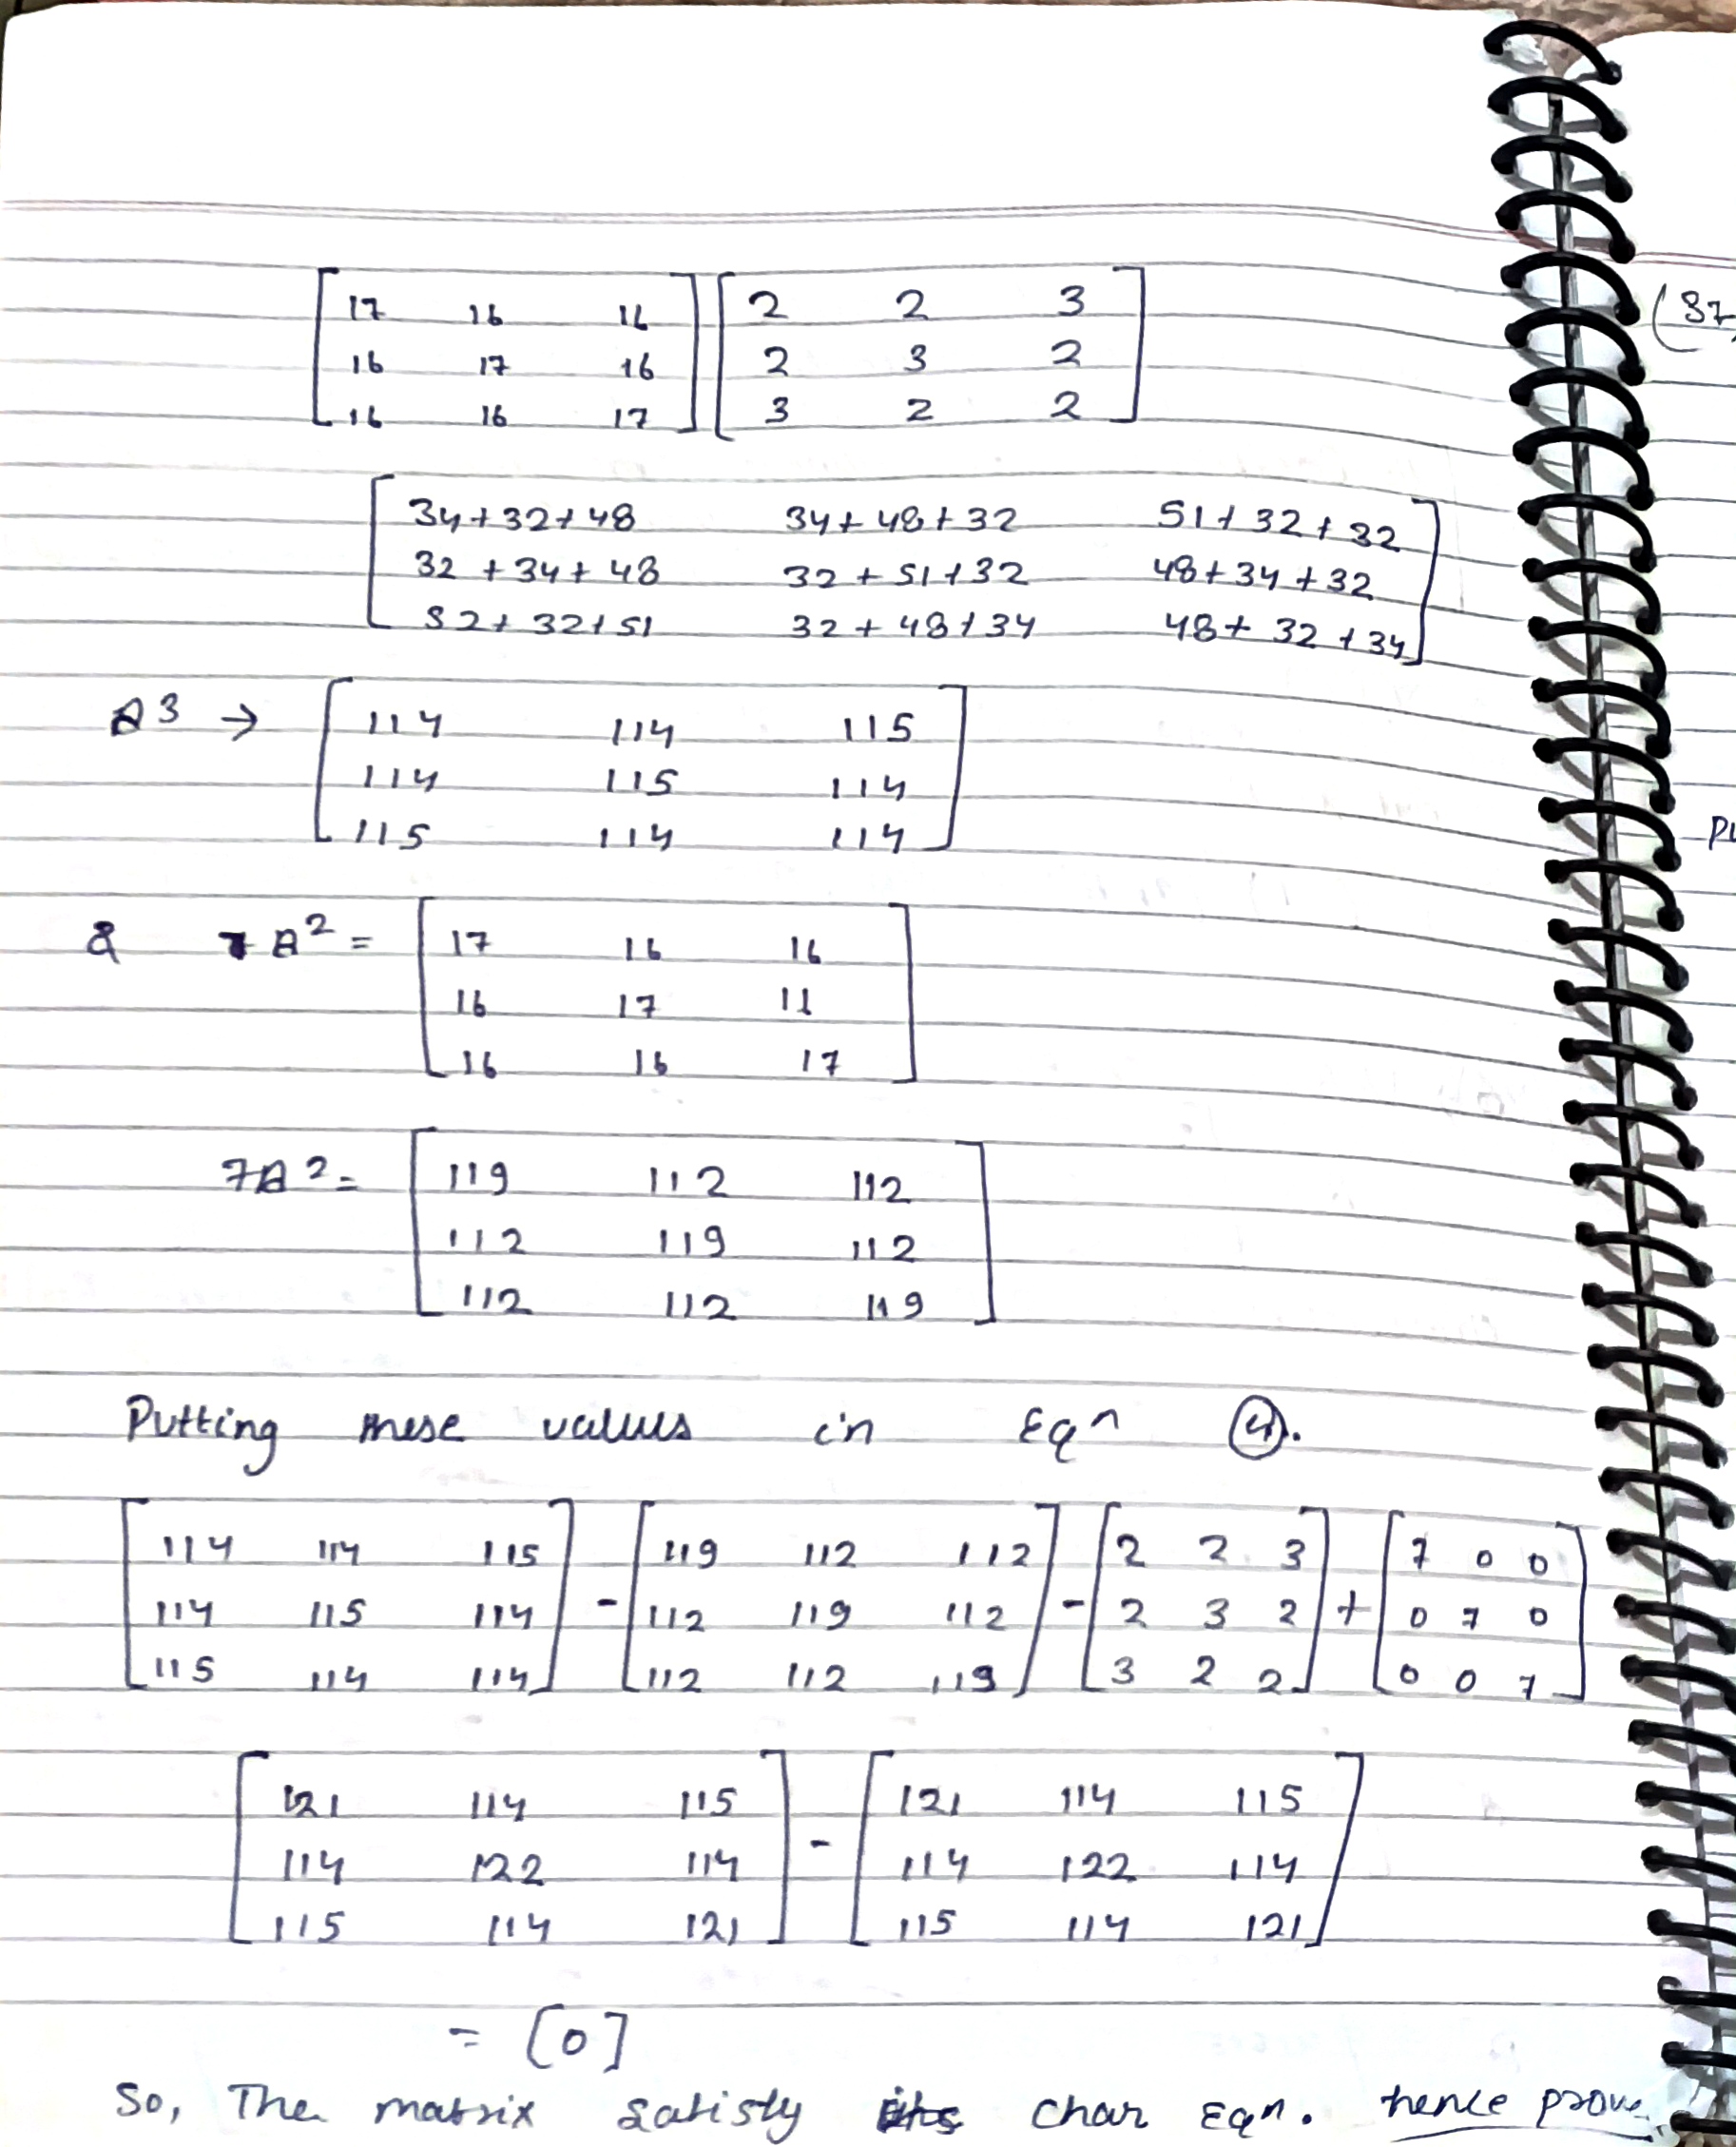 [17 16 16] [2 2 3]
[16 17 16] [2 3 2]
[16 16 17] [3 2 2]
[34+32+48 34+48+32 51+32+32]
[32+34+48 32+51+32 48+34+32]
[32+32+51 32+48+34 48+32+34]
A3 → [114 114 115]
[114 115 114]
[115 114 114]
& A² = [17 16 16]
[16 17 16]
[16 16 17]
7A² = [119 112 112]
[112 119 112]
[112 112 119]
Putting these values in Eqn ④.
[114 114 115] - [119 112 112] - [2 2 3] + [7 0 0]
[114 115 114] [112 119 112] [2 3 2] [0 7 0]
[115 114 114] [112 112 119] [3 2 2] [0 0 7]
[121 114 115] - [121 114 115]
[114 122 114] [114 122 114]
[115 114 121] [115 114 121]
= [0]
So, The matrix satisfy its char Eqn. hence prove
(37